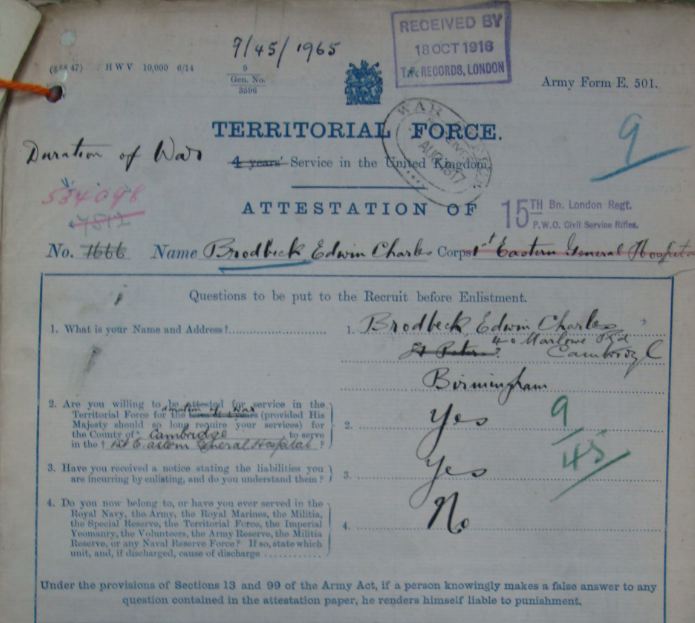 9/45/1965
RECEIVED BY
18 OCT 1916
T.F. RECORDS, LONDON
H W V 10,000 6/14
9
Gen. No.
3596
Army Form E. 501.
9
TERRITORIAL FORCE.
Duration of War
4 years' Service in the United Kingdom.
WAR
534098
ATTESTATION OF
15TH Bn. London Regt.
P.W.O. Civil Service Rifles.
No. 1666 Name Brodbeck Edwin Charles Corps 1st Eastern General Hospital
Questions to be put to the Recruit before Enlistment.
1. What is your Name and Address?
1. Brodbeck Edwin Charles
40 Marlowe Rd
St Peter
Birmingham
2. Are you willing to be attested for service in the
Territorial Force for the duration of War (provided His
Majesty should so long require your services) for
the County of Cambridge to serve
in the 1st Eastern General Hospital ?
2. Yes
9
45
3. Have you received a notice stating the liabilities you
are incurring by enlisting, and do you understand them?
3. Yes
4. Do you now belong to, or have you ever served in the
Royal Navy, the Army, the Royal Marines, the Militia,
the Special Reserve, the Territorial Force, the Imperial
Yeomanry, the Volunteers, the Army Reserve, the Militia
Reserve, or any Naval Reserve Force? If so, state which
unit, and if discharged, cause of discharge
4. No
Under the provisions of Sections 13 and 99 of the Army Act, if a person knowingly makes a false answer to any
question contained in the attestation paper, he renders himself liable to punishment.